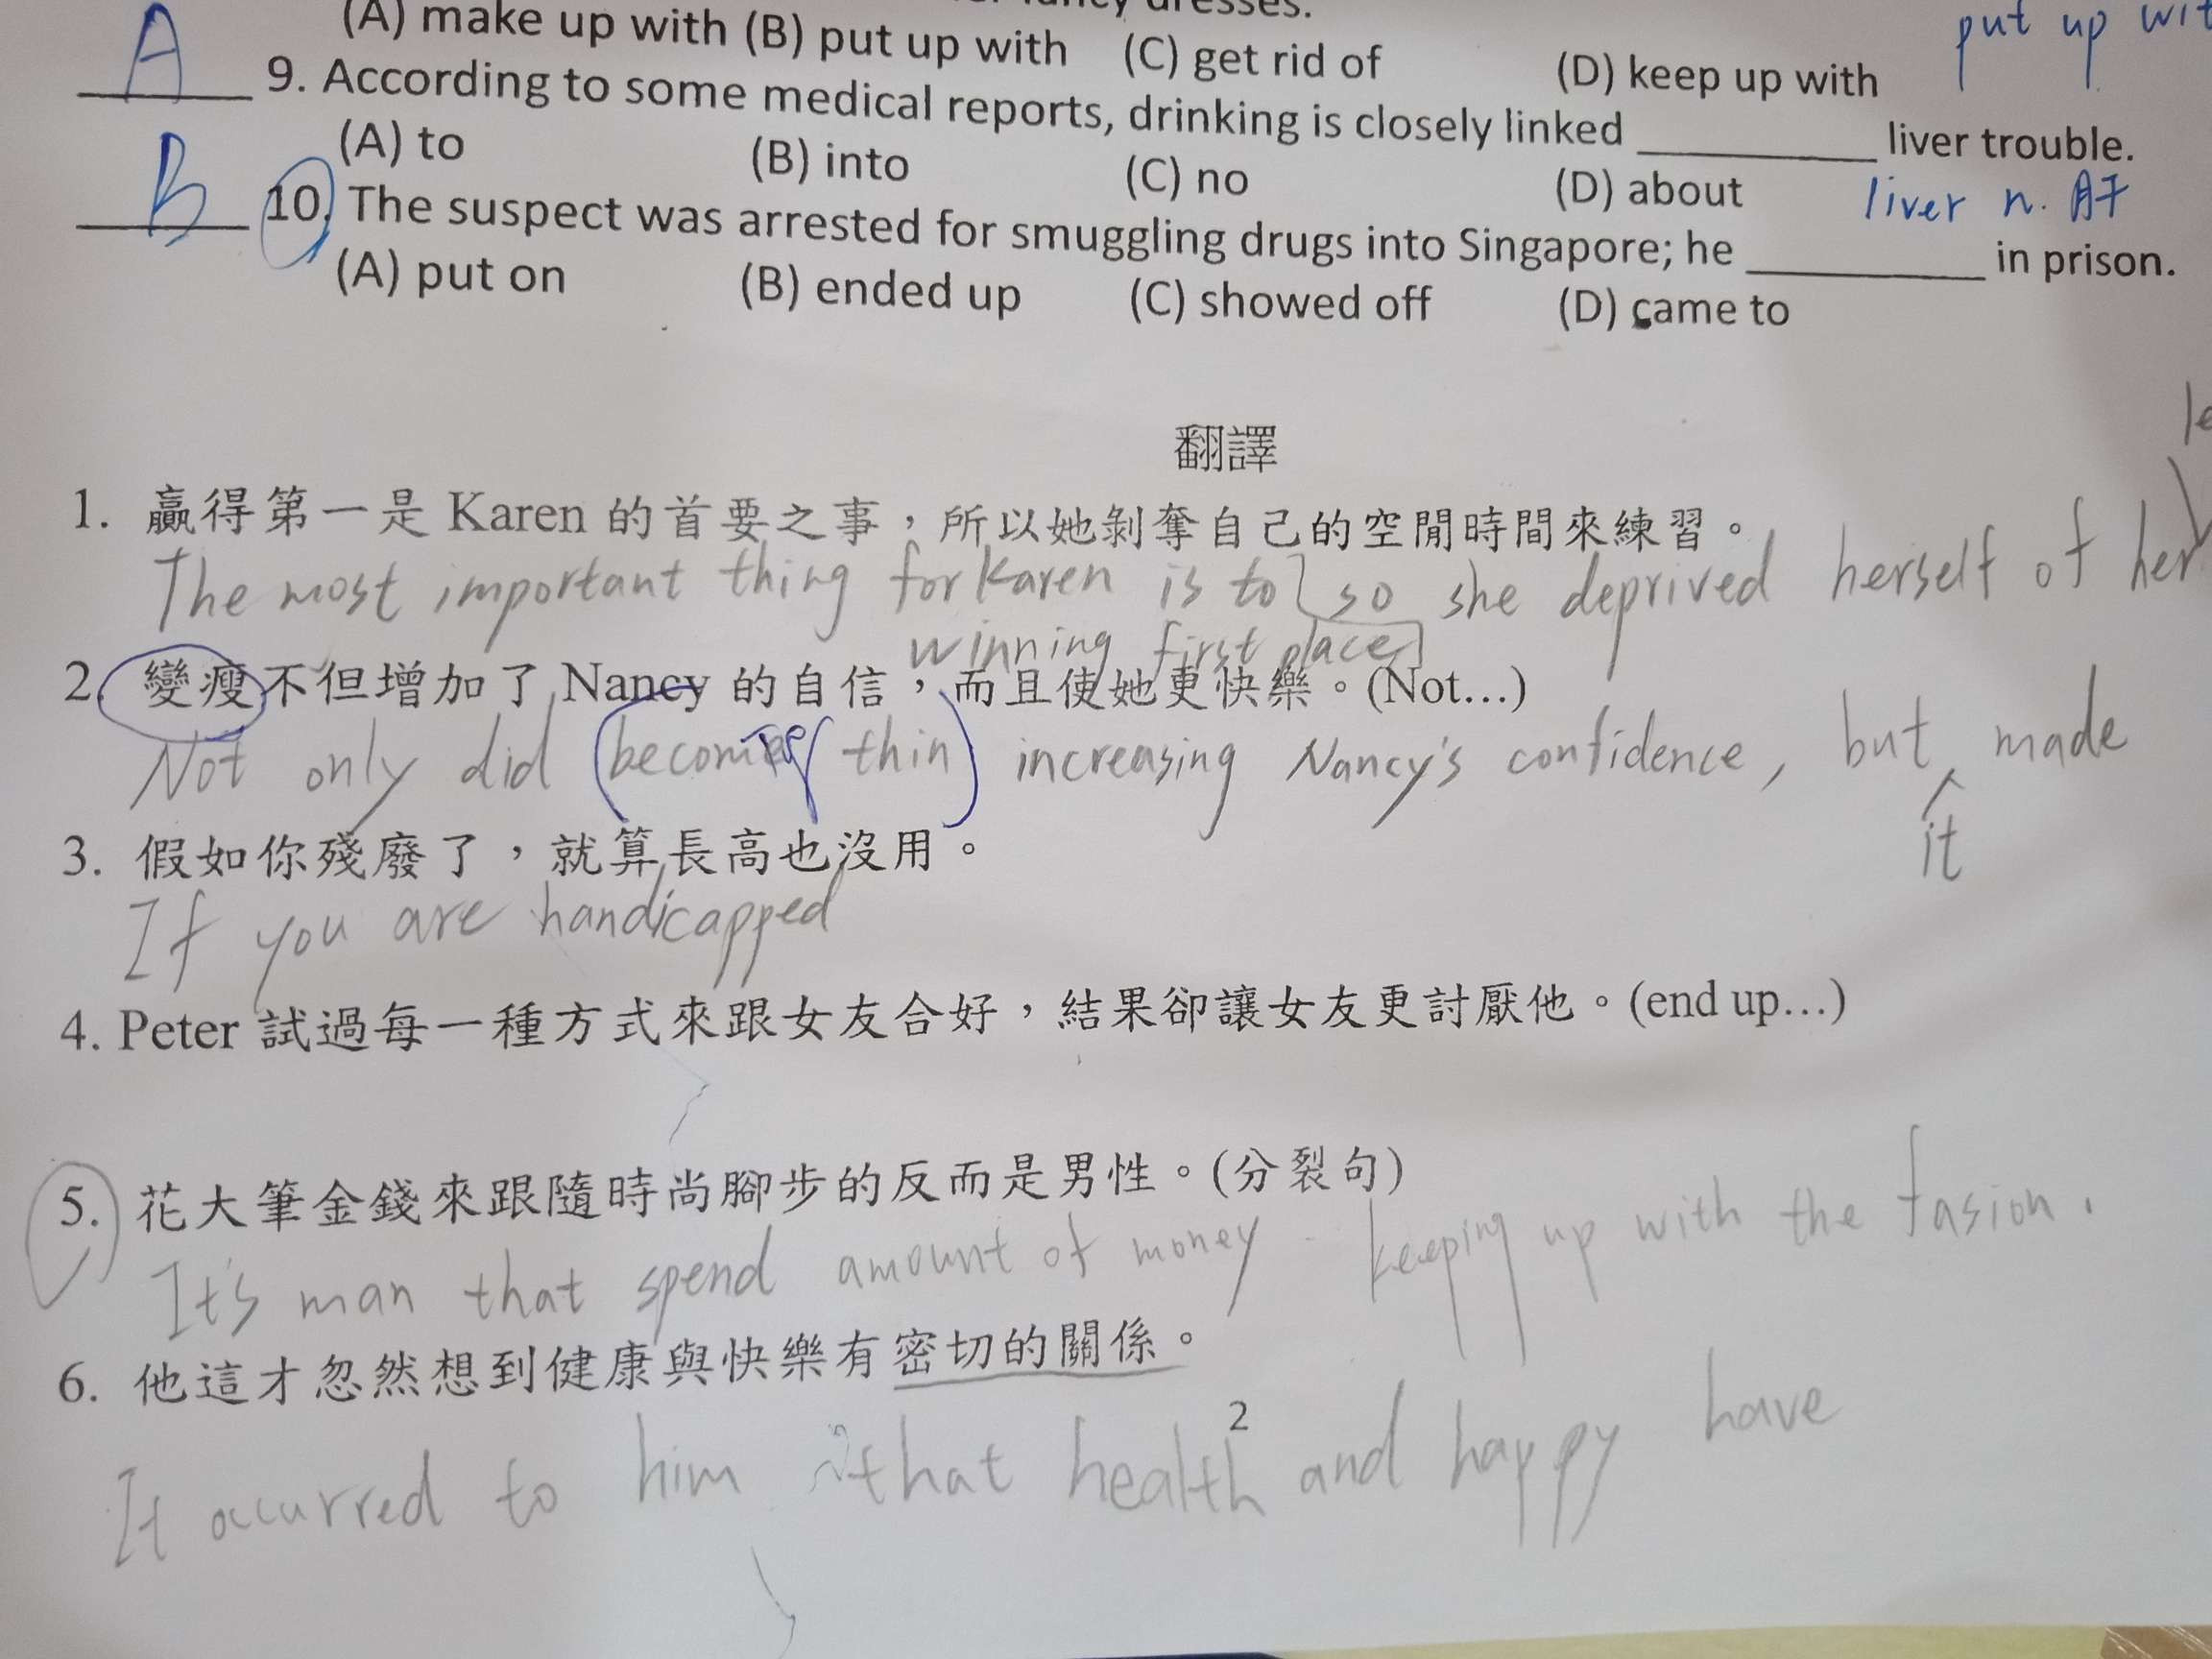 dresses.
(A) make up with (B) put up with (C) get rid of (D) keep up with
put up
A 9. According to some medical reports, drinking is closely linked ________ liver trouble.
(A) to (B) into (C) no (D) about
liver n. 肝
B 10. The suspect was arrested for smuggling drugs into Singapore; he ________ in prison.
(A) put on (B) ended up (C) showed off (D) came to
翻譯
1. 贏得第一是 Karen 的首要之事，所以她剝奪自己的空閒時間來練習。
The most important thing for Karen is to so she deprived herself of her
winning first place
2. 變瘦不但增加了 Nancy 的自信，而且使她更快樂。(Not…)
Not only did thin increasing Nancy's confidence, but made
it
3. 假如你殘廢了，就算長高也沒用。
If you are handicapped
4. Peter 試過每一種方式來跟女友合好，結果卻讓女友更討厭他。(end up…)
5. 花大筆金錢來跟隨時尚腳步的反而是男性。(分裂句)
It's man that spend amount of money keeping up with the fasion.
6. 他這才忽然想到健康與快樂有密切的關係。
2
It ocurred to him that health and happy have